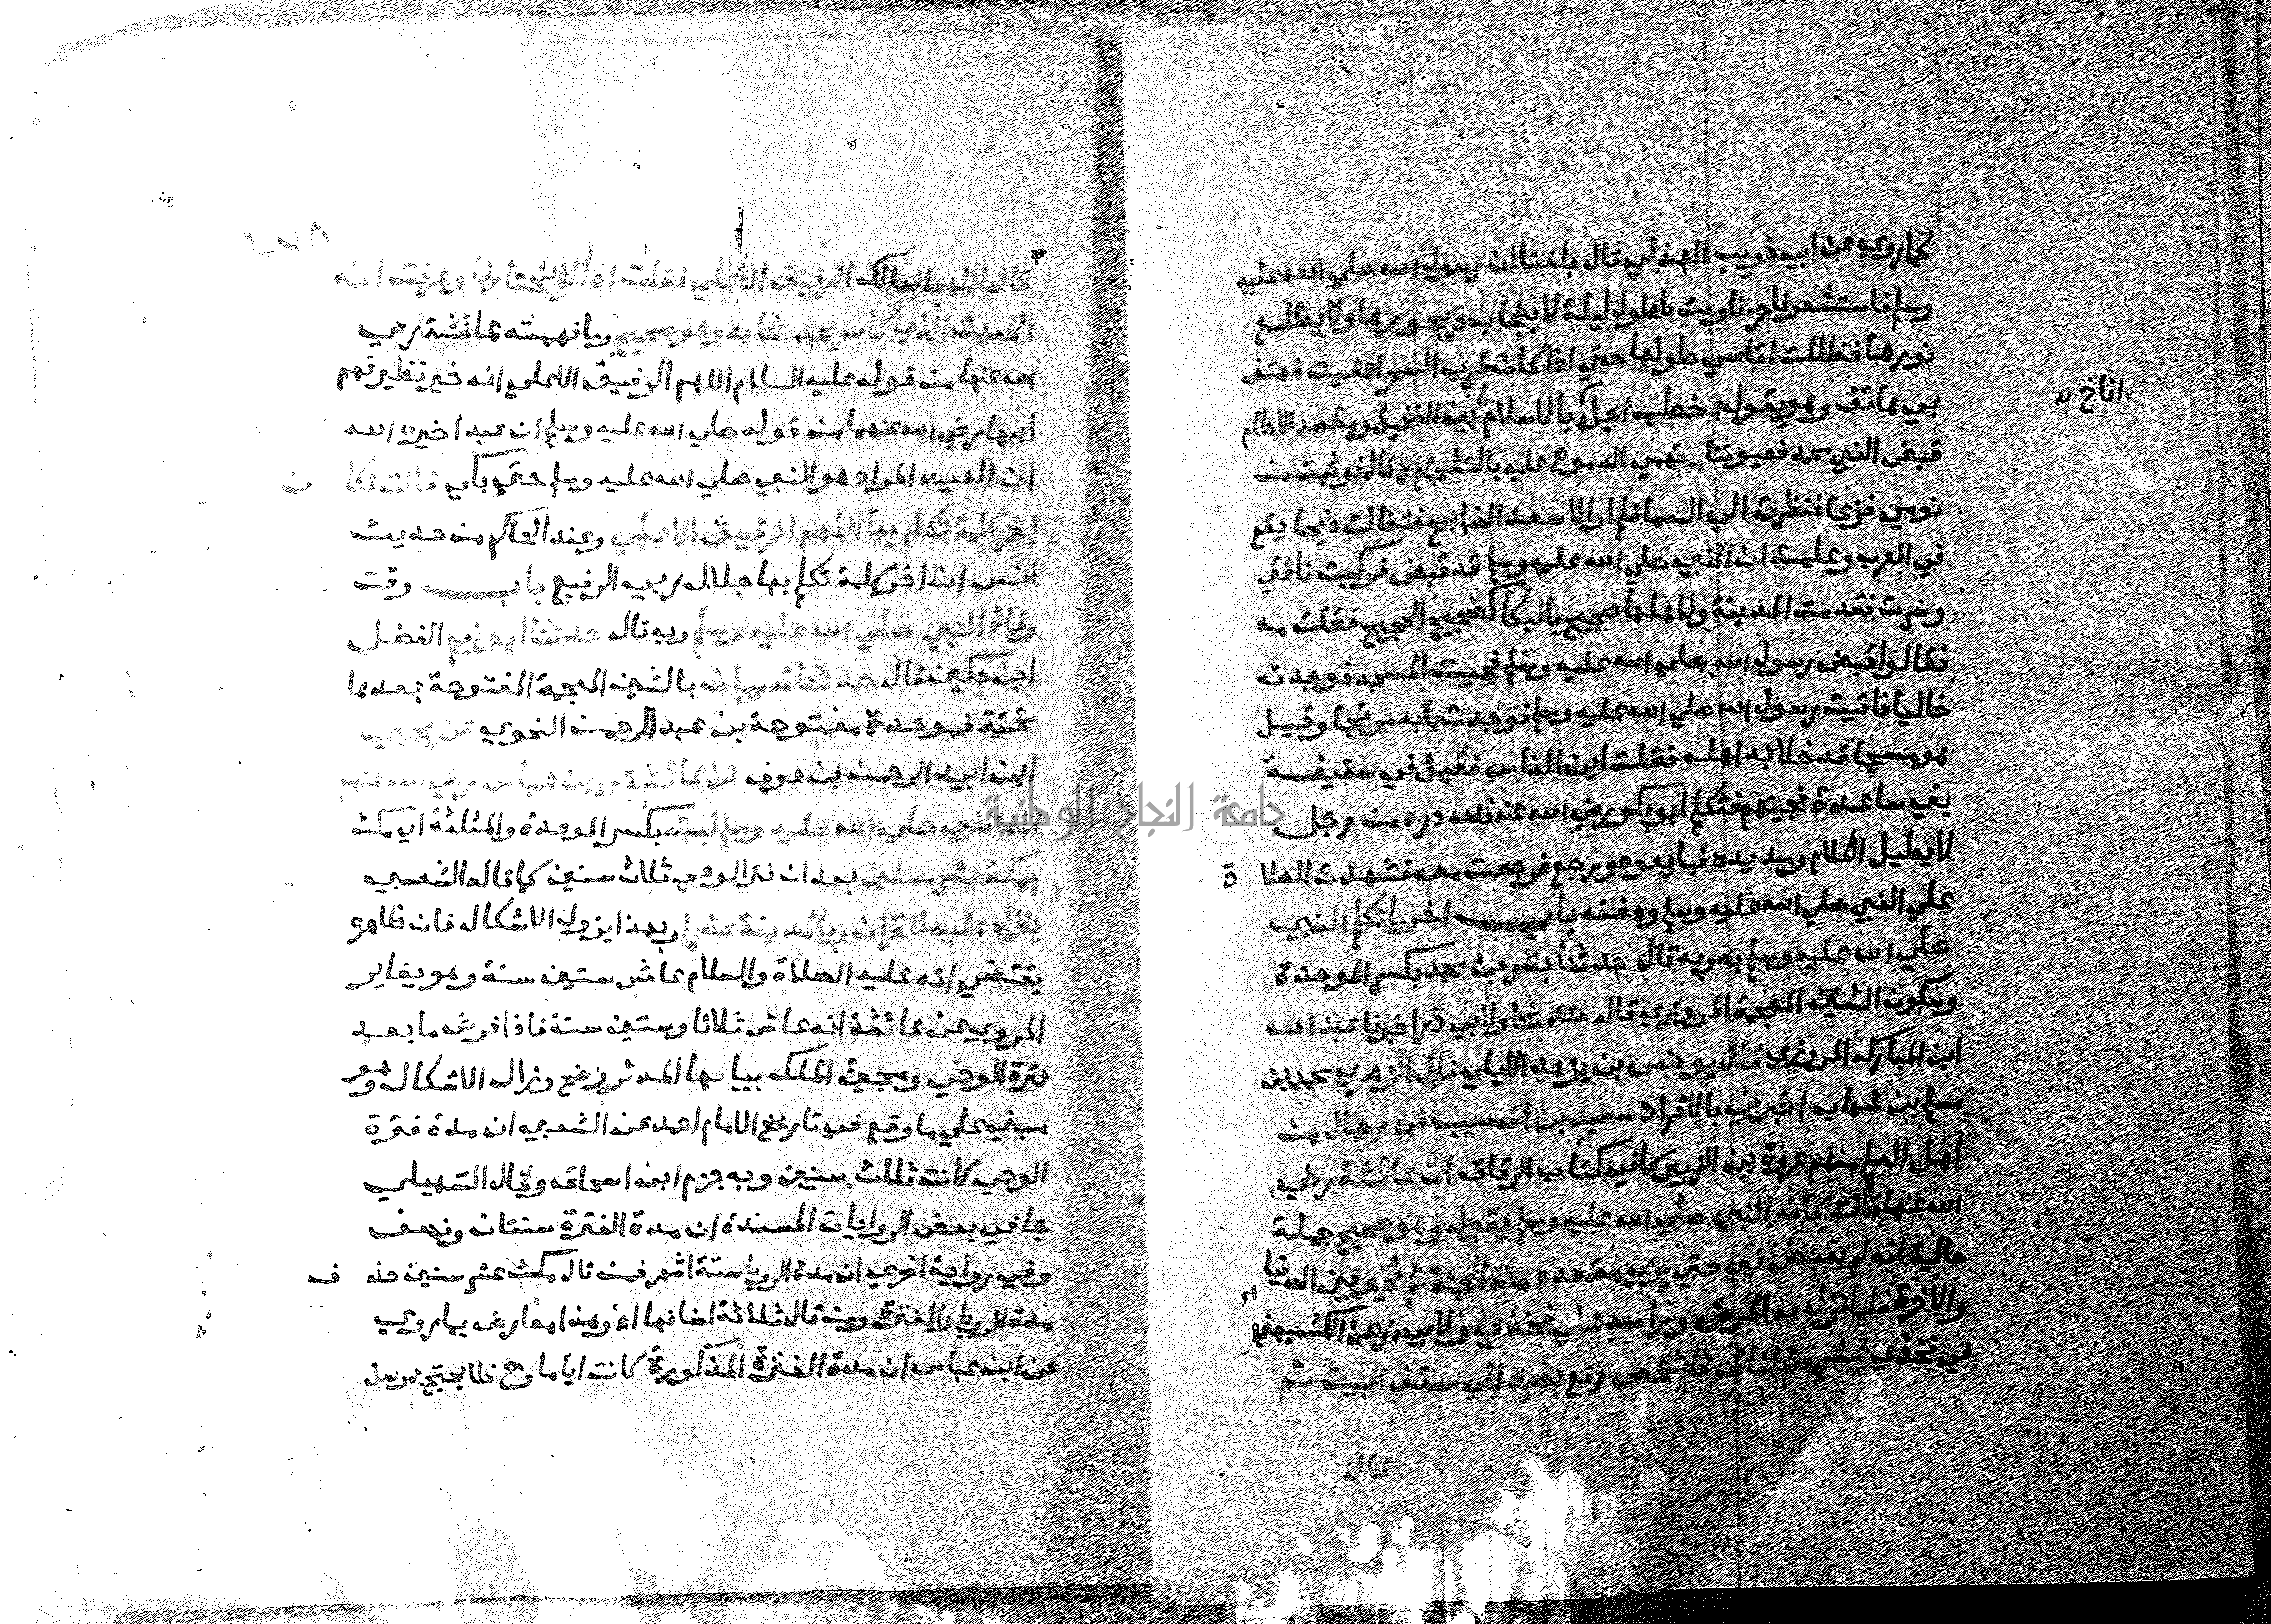 كما روي عن ابي ذويب الهذلي قال بلغنا ان رسول الله صلي الله عليه
وسلم فاستشعرنا وبت باطول ليلة لا ينجاب ديجورها ولا يطلع
نورها فظللت اقاسي طولها حتي اذا كان قرب السحر اغفيت فهتف
بي هاتف وهو يقول خطب اجل بالاسلام بين النخيل ومقعد الاطام
اناخ
قبض النبي محمد فعيوننا تهمي الدموع عليه بالتسجام قال فوثبت من
نومي فزعا فنظرت الي السما فلم ار الا سعد الذابح فتفالت ذبحا يقع
في العرب وعلمت ان النبي صلي الله عليه وسلم قد قبض فركبت ناقتي
وسرت فقدمت المدينة ولاهلها ضجيج بالبكا كضجيج الحجيج فقلت مه
فقالوا قبض رسول الله صلي الله عليه وسلم فجيت المسجد فوجدته
خاليا فاتيت رسول الله صلي الله عليه وسلم فوجدت بابه مرتجا وقيل
هو مسجا قد خلا به اهله فقلت اين الناس فقيل في سقيفة
بني ساعدة فجيتهم فتكلم ابو بكر رضي الله عنه فلله دره من رجل
لا يطيل الكلام ومد يده فبايعوه ورجع فرجعت معه فشهدت الصلا ة
علي النبي صلي الله عليه وسلم ودفنه باب اخر ما تكلم النبي
صلي الله عليه وسلم به وبه قال حدثنا بشر بن محمد بكسر الموحدة
وسكون الشين المعجمة المروزي قال حدثنا ولابي ذر اخبرنا عبد الله
ابن المبارك المروزي قال يونس بن يزيد الايلي قال الزهري محمد بن
مسلم بن شهاب اخبرني بالافراد سعيد بن المسيب في رجال من
اهل العلم منهم عروة بن الزبير كما في كتاب الرقاق ان عائشة رضي
الله عنها قالت كان النبي صلي الله عليه وسلم يقول وهو صحيح جملة
حالية انه لم يقبض نبي حتي يري مقعده من الجنة ثم يخير بين الدنيا
والاخرة فلما نزل به المرض وراسه علي فخذي ولابي ذر عن الكشميهني
في فخذي غشي ثم افاق فاشخص رفع بصره الي سقف البيت ثم
قال
قال اللهم اسالك الرفيق الاعلي فقلت اذا لا يختارنا وعرفت انه
الحديث الذي كان يحدثنا به وهو صحيح وما فهمته عائشة رضي
الله عنها من قوله عليه السلام اللهم الرفيق الاعلي انه خير نظير فهم
ابيها رضي الله عنهما من قوله صلي الله عليه وسلم ان عبدا خيره الله
ان العبد المراد هو النبي صلي الله عليه وسلم حتي بكي قالت فكا ن
اخر كلمة تكلم بها اللهم الرفيق الاعلي وعند الحاكم من حديث
انس ان اخر كلمة تكلم بها جلال ربي الرفيع باب وقت
وفاة النبي صلي الله عليه وسلم وبه قال حدثنا ابو نعيم الفضل
ابن دكين قال حدثنا شيبان بالشين المعجمة المفتوحة بعدها
تحتية فموحدة مفتوحة بن عبد الرحمن النحوي عن يحيي
ابن ابي عبد الرحمن بن عوف عن عائشة وابن عباس رضي الله عنهم
ان النبي صلي الله عليه وسلم لبث بكسر الموحدة والمثلثة اي مكث
بمكة عشر سنين بعد ان فتر الوحي ثلاث سنين كما قاله الشعبي
ينزل عليه القران وبالمدينة عشرا وبهذا يزول الاشكال فان ظاهره
يقتضي انه عليه الصلاة والسلام عاش ستين سنة وهو يغاير
المروي عن عائشة انه عاش ثلاثا وستين سنة فاذا فرغ ما بعد
فترة الوحي ومجيئ الملك بيا ايها المدثر وضح وزال الاشكال وهو
مبني علي ما وقع في تاريخ الامام احمد عن الشعبي ان مدة فترة
الوحي كانت ثلاث سنين وبه جزم ابن اسحاق وقال السهيلي
جا في بعض الروايات المسندة ان مدة الفترة سنتان ونصف
وفي رواية اخري ان مدة الرويا ستة اشهر فمن قال مكث عشر سنين حذ ف
مدة الرويا والفترة ومن قال ثلاثة اضافها اه وهذا معارض بما روي
عن ابن عباس ان مدة الفترة المذكورة كانت اياما وح فلا يحتج بمرسل
جامعة النجاح الوطنية